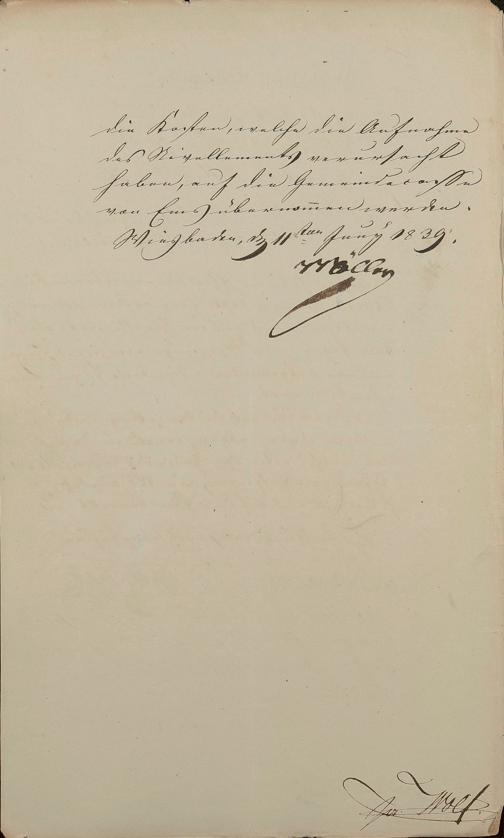 die Kosten, welche die Aufnahme
des Nivellements verursacht
haben, auf die Gemeindecasse
von Ems übernommen werden.
Wiesbaden, d 11ten Juny 1839.
Möller
Wolf.